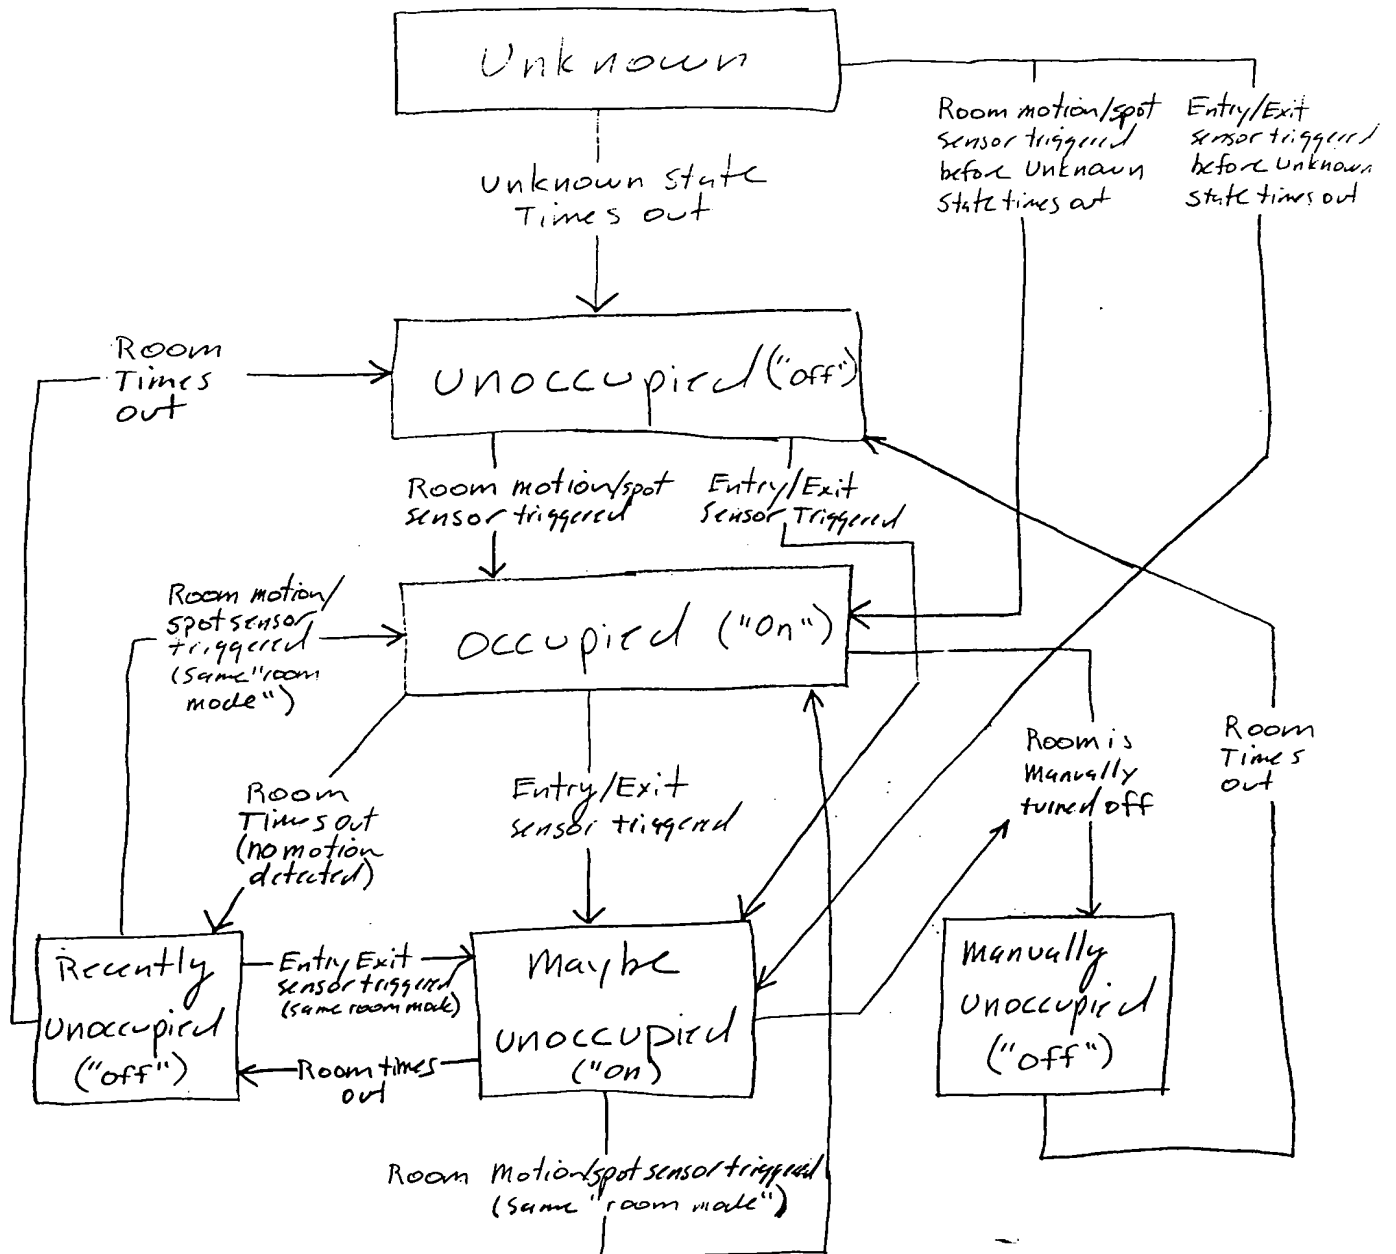 Unknown
Room motion/spot
sensor triggered
before Unknown
State times out
Entry/Exit
sensor triggered
before Unknown
State times out
Unknown State
Times out
Room
Times
out
Unoccupied ("off")
Room motion/spot
sensor triggered
Entry/Exit
Sensor Triggered
Room motion/
spot sensor
triggered
(same "room
mode")
Occupied ("On")
Room
Times out
(no motion
detected)
Entry/Exit
sensor triggered
Room is
Manually
turned off
Room
Times
out
Recently
Unoccupied
("off")
Entry/Exit
sensor triggered
(same room mode)
Room times
out
Maybe
Unoccupied
("On)
Manually
Unoccupied
("off")
Room Motion/spot sensor triggered
(same "room mode")